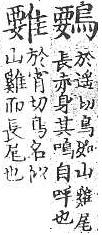 於遥切鳥如山雞尾
長亦身其鳴自呼也
於宵切鳥名似
山雞而長尾也